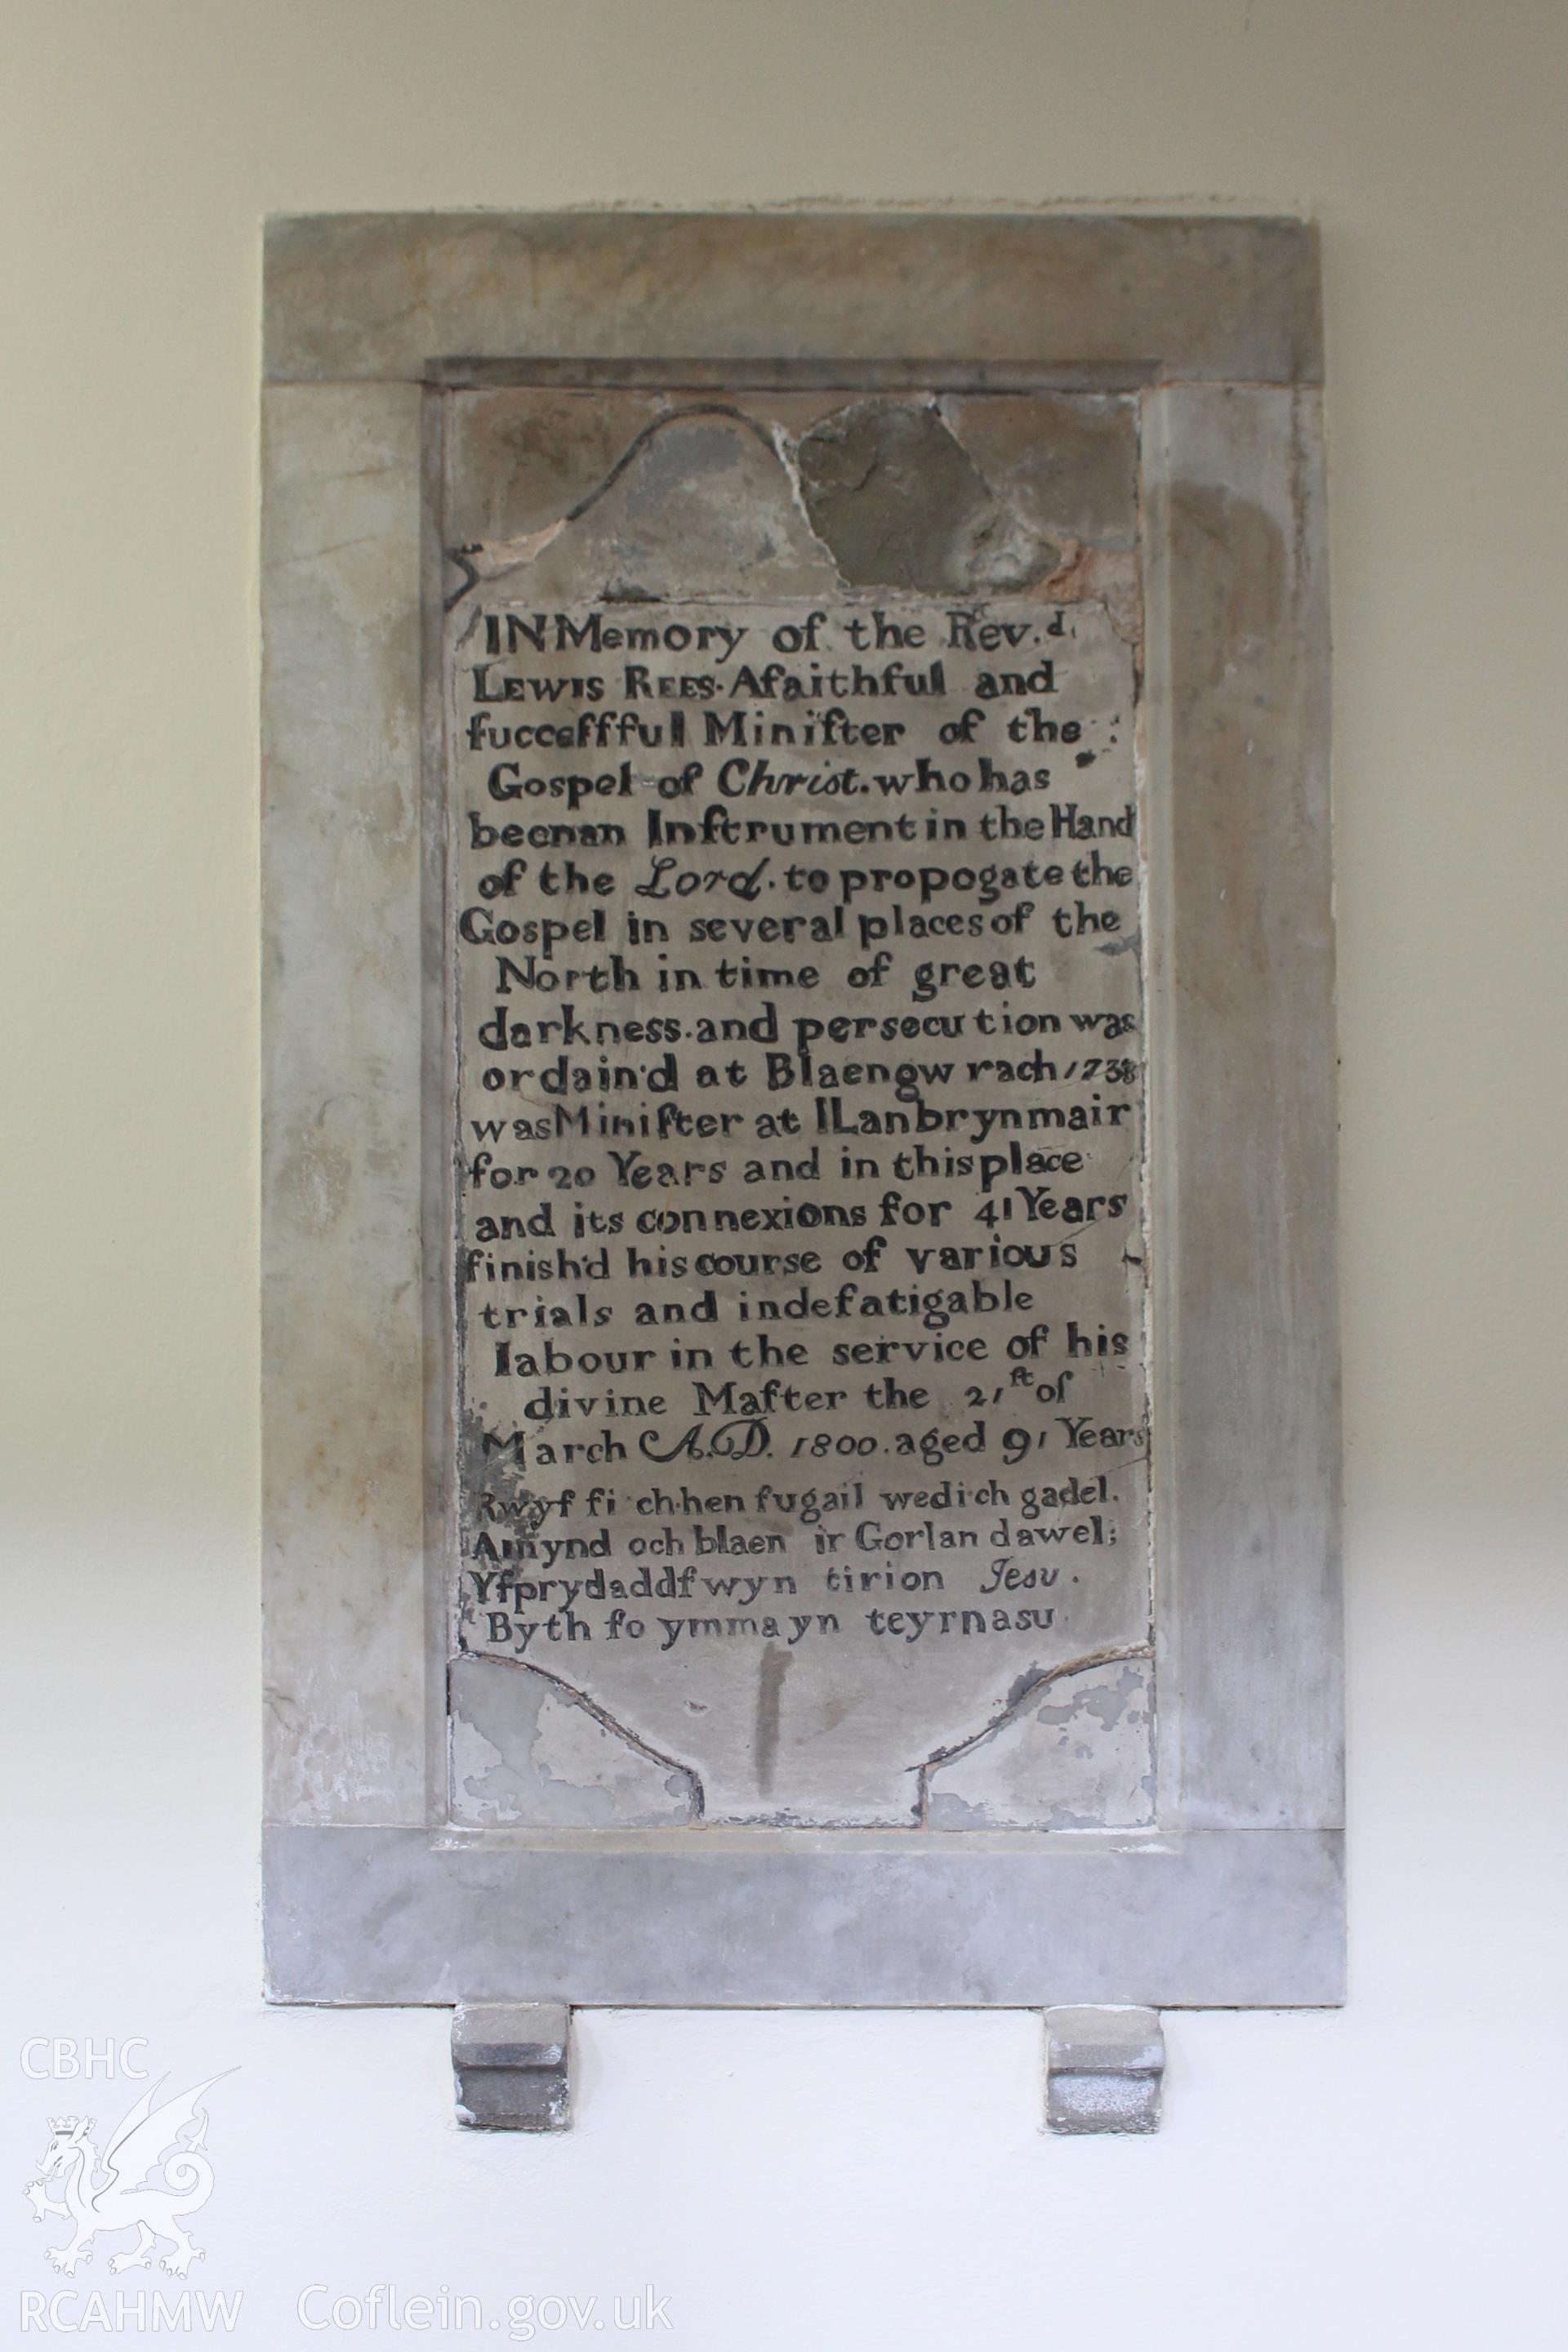 IN Memory of the Rev.d
LEWIS REES. A faithful and
ſucceſſful Miniſter of the
Gospel of Christ. who has
been an Inſtrument in the Hand
of the Lord. to propogate the
Gospel in several places of the
North in time of great
darkness. and persecution was
ordain'd at Blaengwrach 1738
was Miniſter at lLanbrynmair
for 20 Years and in this place
and its connexions for 41 Years
finish'd his course of various
trials and indefatigable
labour in the service of his
divine Maſter the 21ſt of
March A.D. 1800. aged 91 Years
Rwyf fi ch hen fugail wedi ch gadel.
Amynd och blaen ir Gorlan dawel;
Yſprydaddfwyn tirion Jesu.
Byth fo ymma yn teyrnasu
CBHC
RCAHMW
Coflein.gov.uk